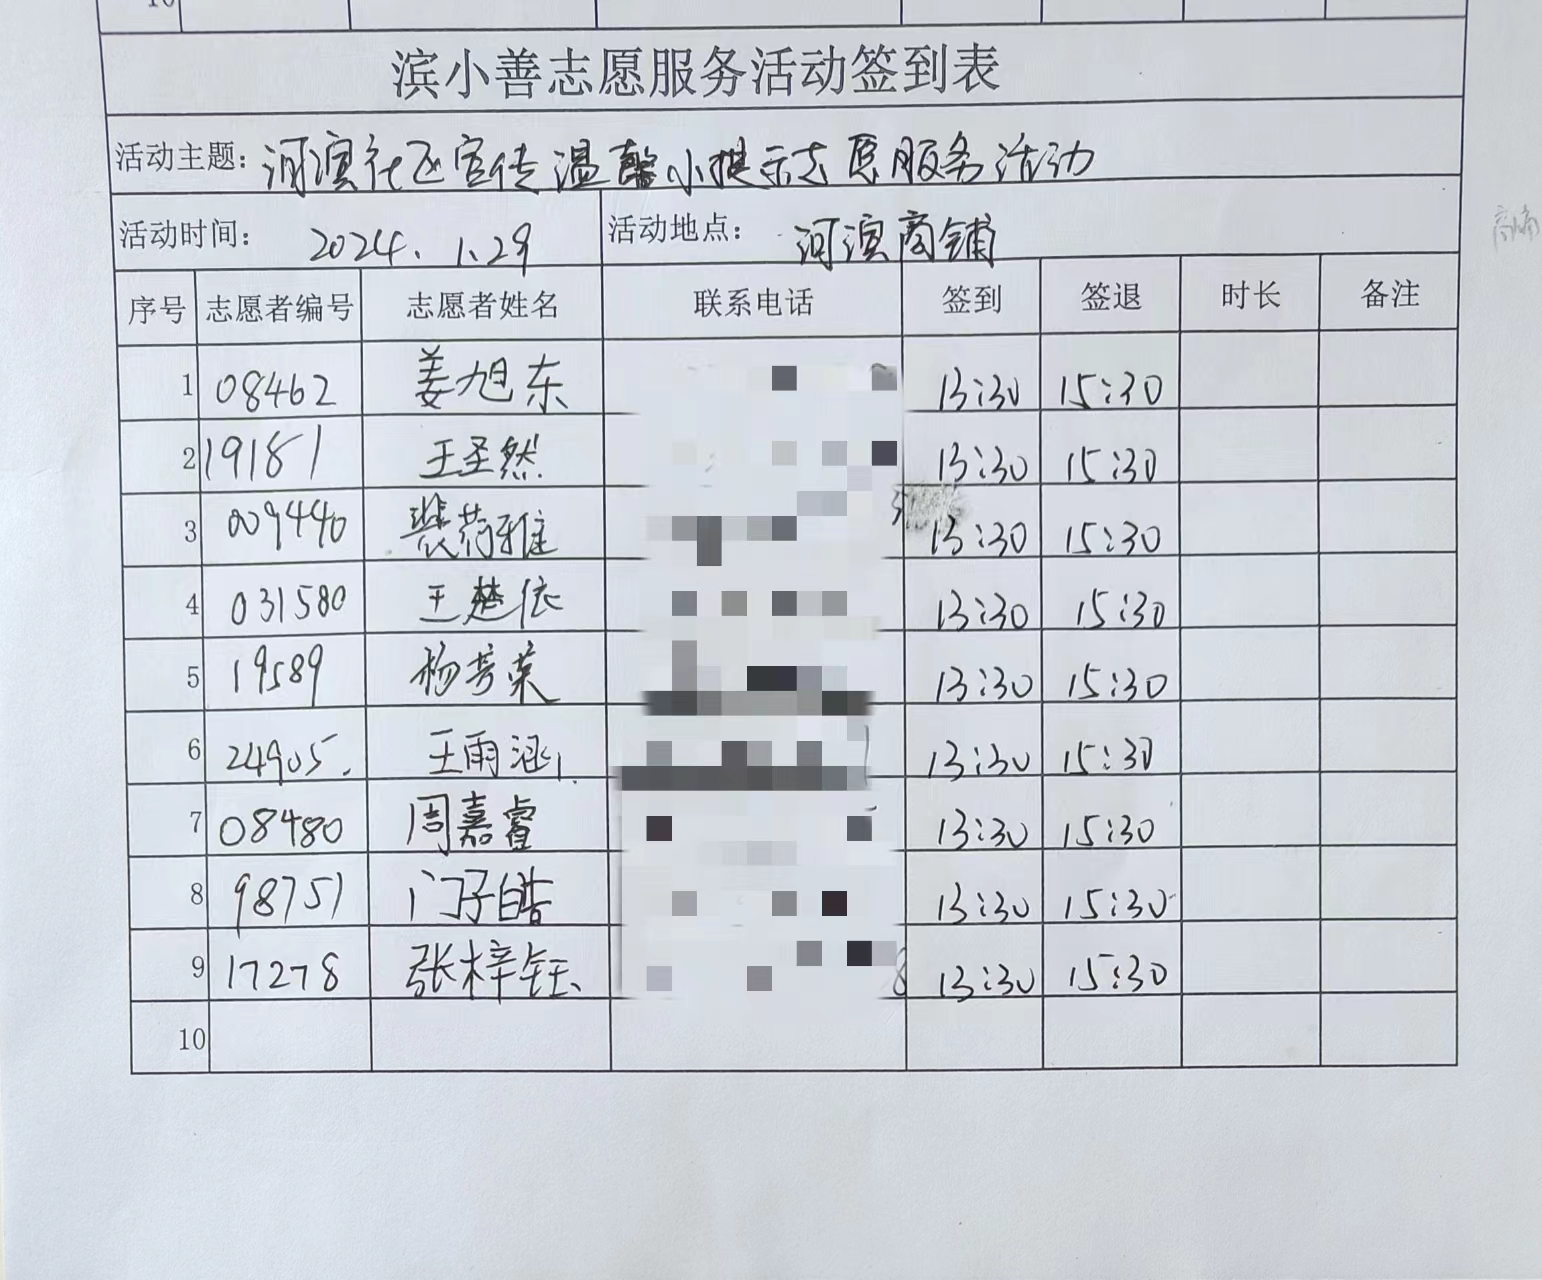 10
滨小善志愿服务活动签到表
活动主题：河滨社区宣传温馨小提示志愿服务活动
活动时间： 2024.1.29 活动地点： 河滨商铺
序号 志愿者编号 志愿者姓名 联系电话 签到 签退 时长 备注
1 08462 姜旭东 13:30 15:30
2 19181 王圣然 13:30 15:30
3 009440 裴荷雅 13:30 15:30
4 031580 王楚依 13:30 15:30
5 19589 杨芳荣 13:30 15:30
6 24905. 王雨涵 13:30 15:30
7 08480 周嘉睿 13:30 15:30
8 98751 门子皓 13:30 15:30
9 17278 张梓钰 13:30 15:30
10